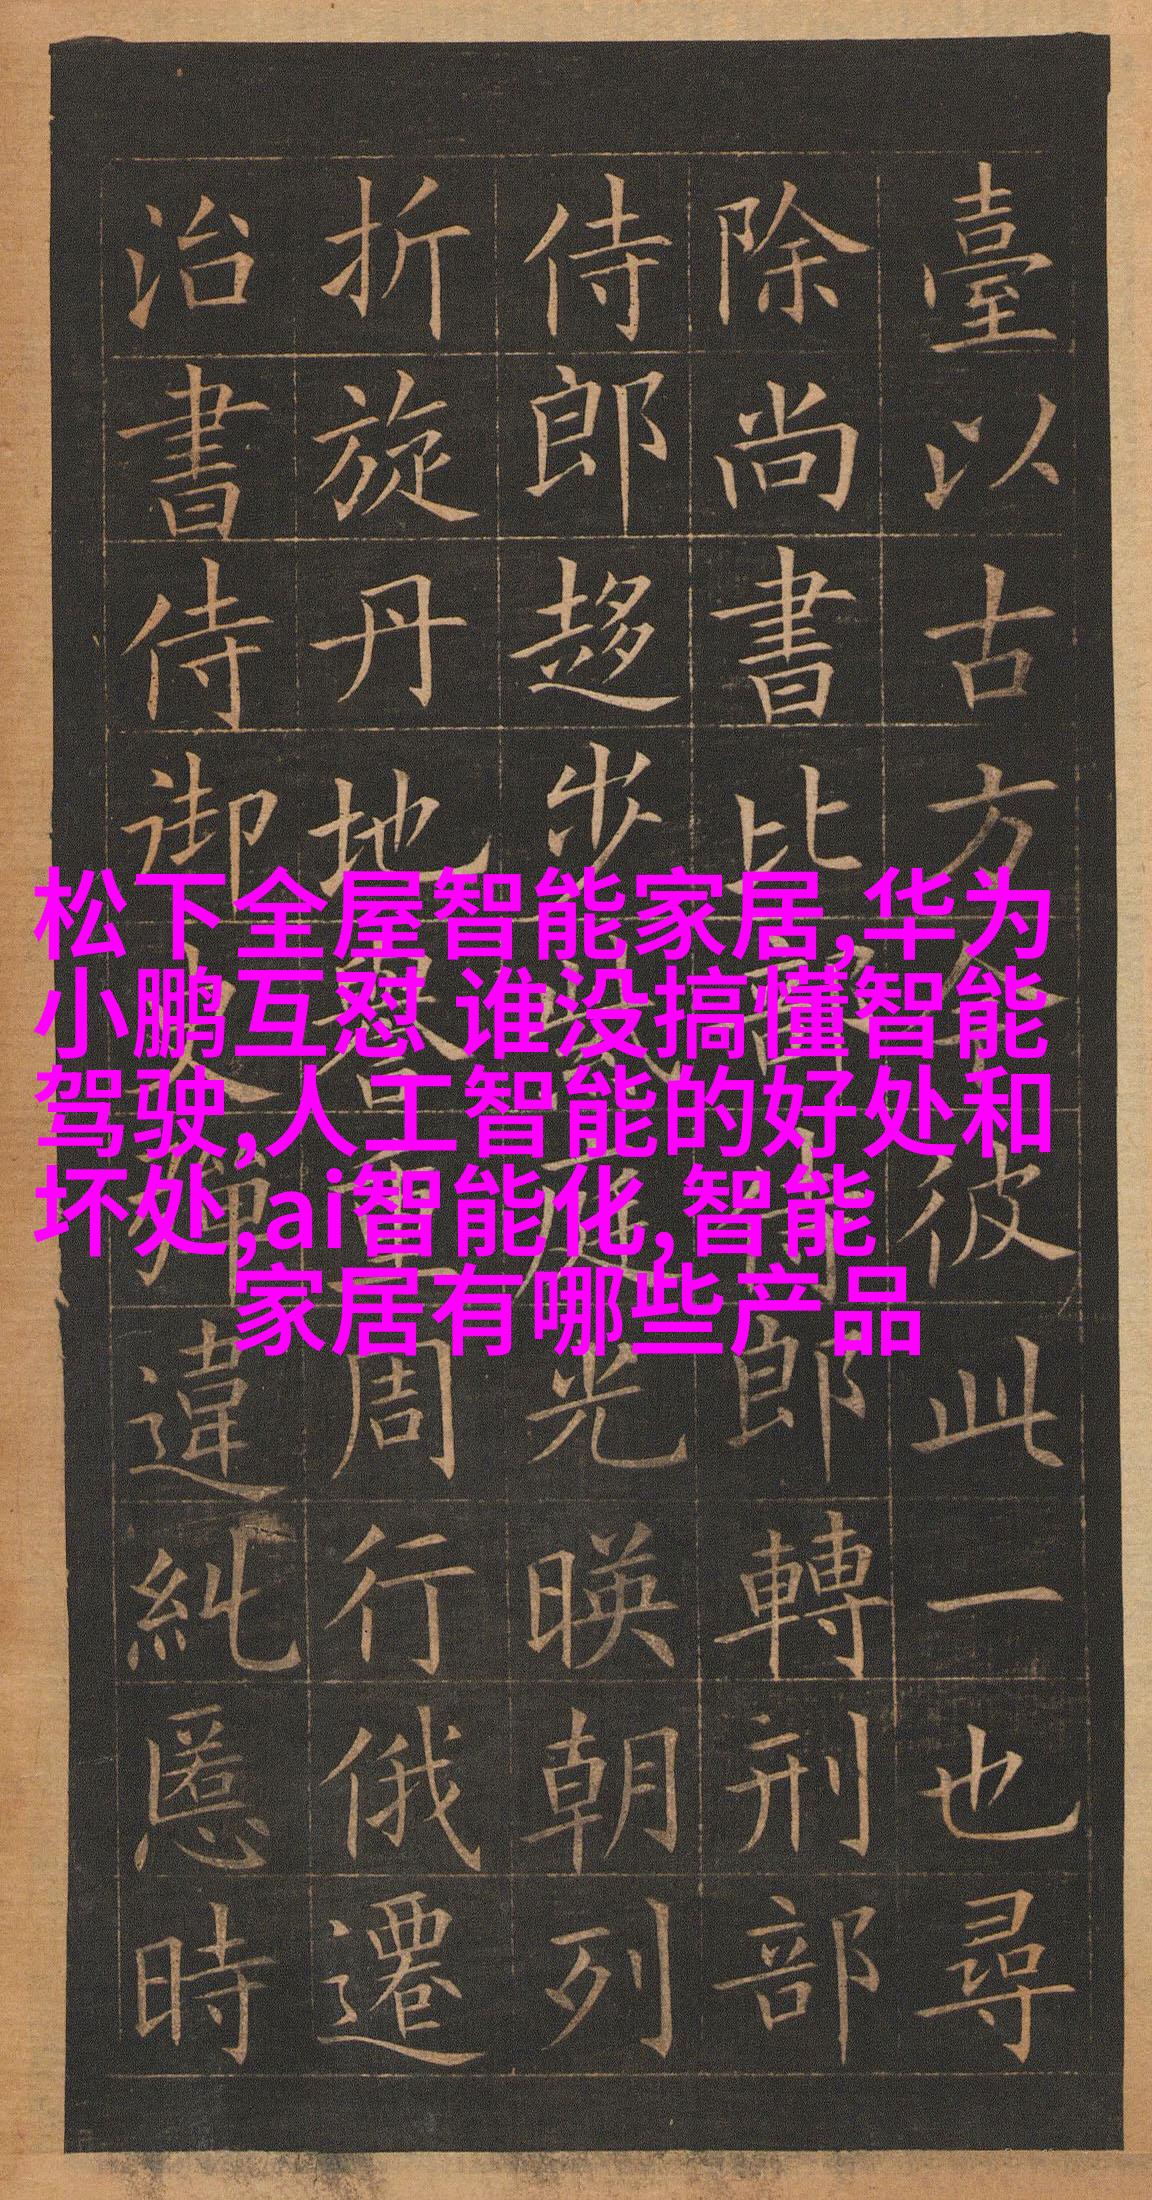 臺以古方今彼此一也尋
除尚書比部侍郎轉刑部
侍郎趍步紫庭光暎朝列
折旋丹地譽重周行俄遷
治書侍御史彈違糺慝時
松下全屋智能家居,华为
小鹏互怼 谁没搞懂智能
驾驶,人工智能的好处和
坏处,ai智能化,智能
家居有哪些产品